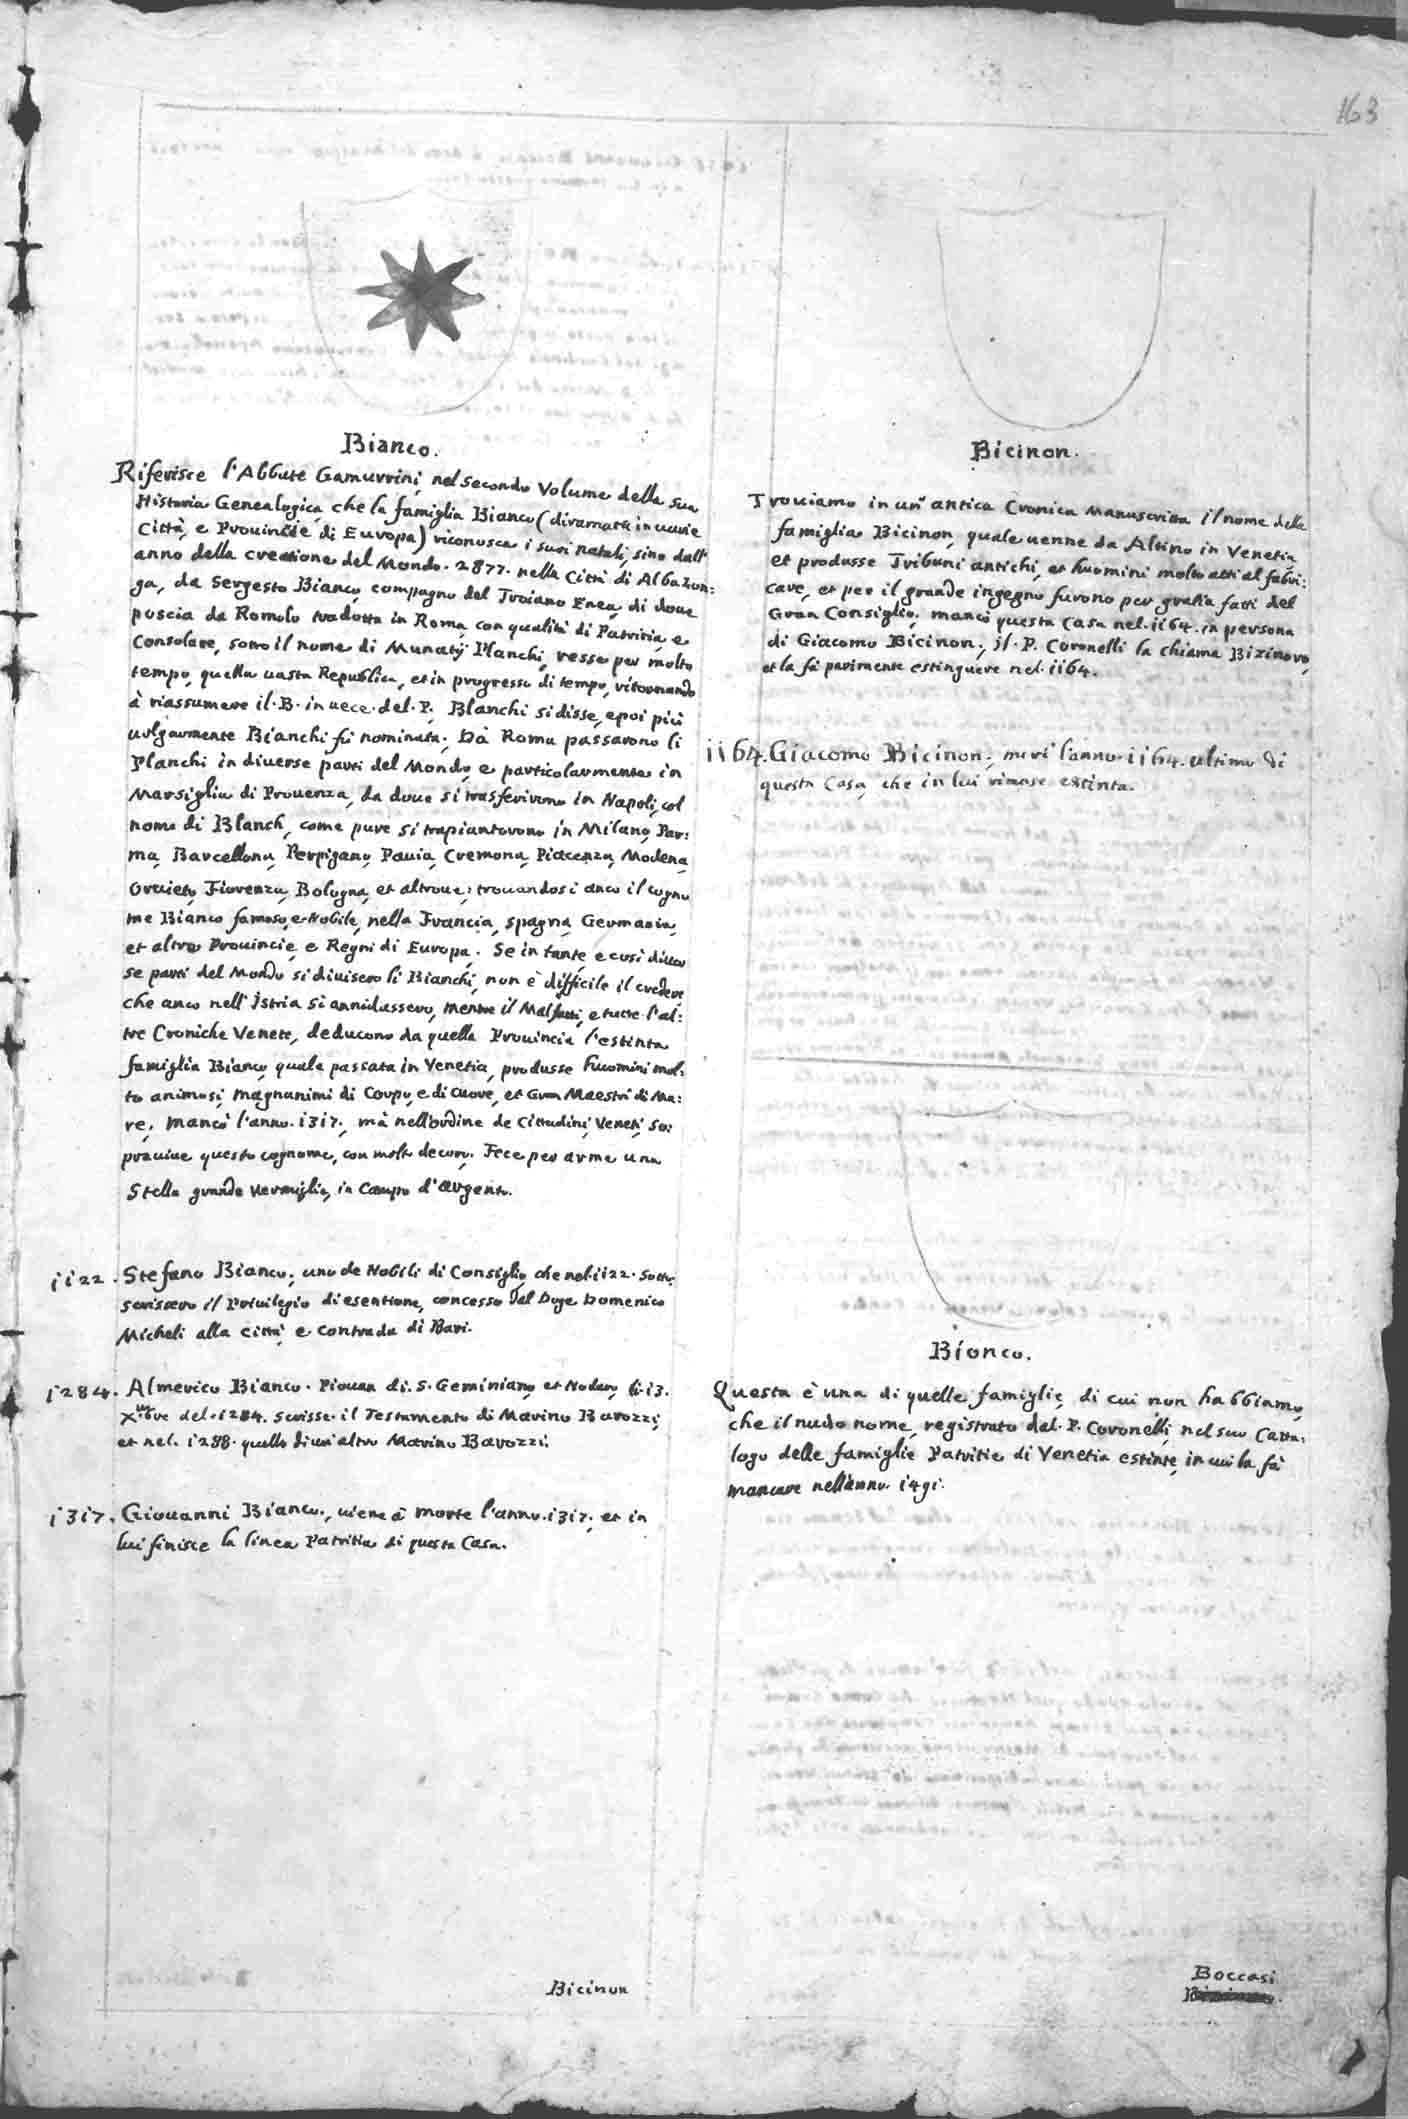 163
Bianco.
Riferisce l'Abbate Gamurrini, nel secondo Volume della sua
Historia Genealogica, che la famiglia Bianco (diramata in uarie
Città, e Prouincie di Europa) riconosca i suoi natali, sino dall'
anno della creatione del Mondo. 2877. nella Città di Albazon:
ga, da Sergesto Bianco, compagno del Troiano Enea, di doue
poscia da Romolo tradotta in Roma, con qualità di Patritia, e
Consolare, sotto il nome di Munatij Planchi, resse per molto
tempo, quella uasta Republica, et in progresso di tempo, ritornando
à riassumere il .B. in uece .del .P. Blanchi si disse, e poi più
uolgarmente Bianchi fù nominata. Dà Roma passarono li
Planchi in diuerse parti del Mondo, e particolarmente in
Marsiglia di Prouenza, da doue si trasferirono in Napoli, col
nome di Blanch, come pure si trapiantorono in Milano, Par:
ma, Barcellona, Perpigano, Pauia, Cremona, Piacenza, Modena,
Oruieto, Fiorenza, Bologna, et altroue; trouandosi anco il cogno
me Bianco famoso, e Nobile, nella Francia, spagna, Germania,
et altre Prouincie, e Regni di Europa. Se in tante, e così diuer
se parti del Mondo si diuisero li Bianchi, non è difficile il credere,
che anco nell'Istria si annidassero, mentre il Malfatti, e tutte l'al:
tre Croniche Venete, deducono da quella Prouincia l'estinta
famiglia Bianco, quale passata in Venetia, produsse huomini mol:
to animosi, magnanimi di Corpo, e di cuore, et Gran Maestri di Ma:
re. Mancò l'anno. 1317., mà nell'ordine de Cittadini, Veneti, so:
prauiue questo cognome, con molto decoro. Fece per arma una
Stella grande Vermiglia, in Campo d'argento.
1122. Stefano Bianco, uno de Nobili di Consiglio, che nel. 1122. sotto
scrissero il Priuilegio di esentione, concesso dal Doge Domenico
Micheli alla città, e contrada di Bari.
1284. Almerico Bianco. Piouan di. S. Geminiano, et Nodaro, li. 13.
Xmbre del. 1284. scrisse il Testamento di Marino Barozzi,
et nel. 1288. quello di un'altro Marino Barozzi.
1317. Giouanni Bianco., uiene à morte l'anno. 1317., et in
lui finisce la linea Patritia di questa Casa.
Bicinon
Bicinon.
Trouiamo in un'antica Cronica Manuscritta il nome della
famiglia Bicinon, quale uenne da Altino in Venetia,
et produsse Tribuni antichi, et huomini molto atti al fabri:
care, et per il grande ingegno furono per gratia fatti del
Gran Consiglio; mancò questa Casa nel. 1164. in persona
di Giacomo Bicinon; il .P. Coronelli la chiama Bizinovo,
et la fà parimente estinguere nel. 1164.
1164. Giacomo Bicinon; morì l'anno. 1164. ultimo di
questa Casa, che in lui rimase estinta.
Bionco.
Questa è una di quelle famiglie, di cui non habbiamo,
che il nudo nome, registrato dal .P. Coronelli, nel suo Catta:
logo delle famiglie Patritie di Venetia estinte, in cui la fà
mancare nell'anno. 1491.
Boccasi